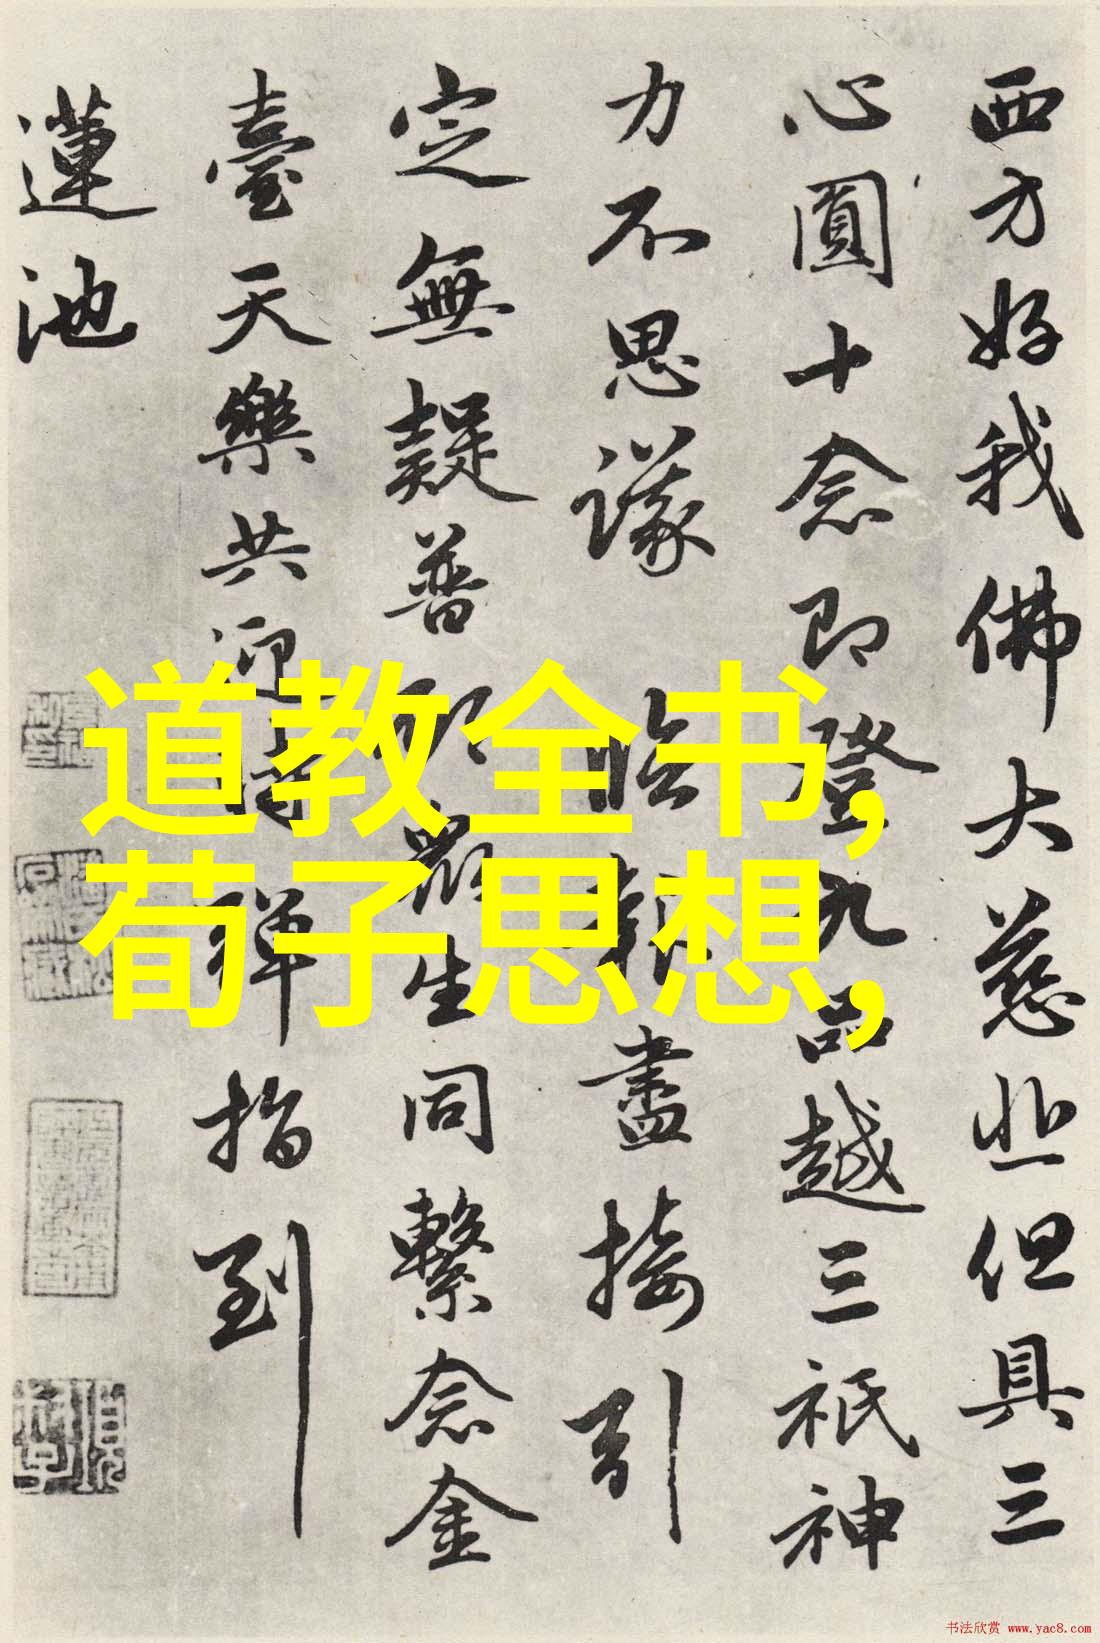 西方好我佛大慈悲但具三
心圓十念即登九品越三祇神
力不思議 盡接引
定無疑普 眾生同繫念金
臺天樂共迎 彈指到
蓮池
道教全书,
荀子思想,
书法欣赏 www.yac8.com